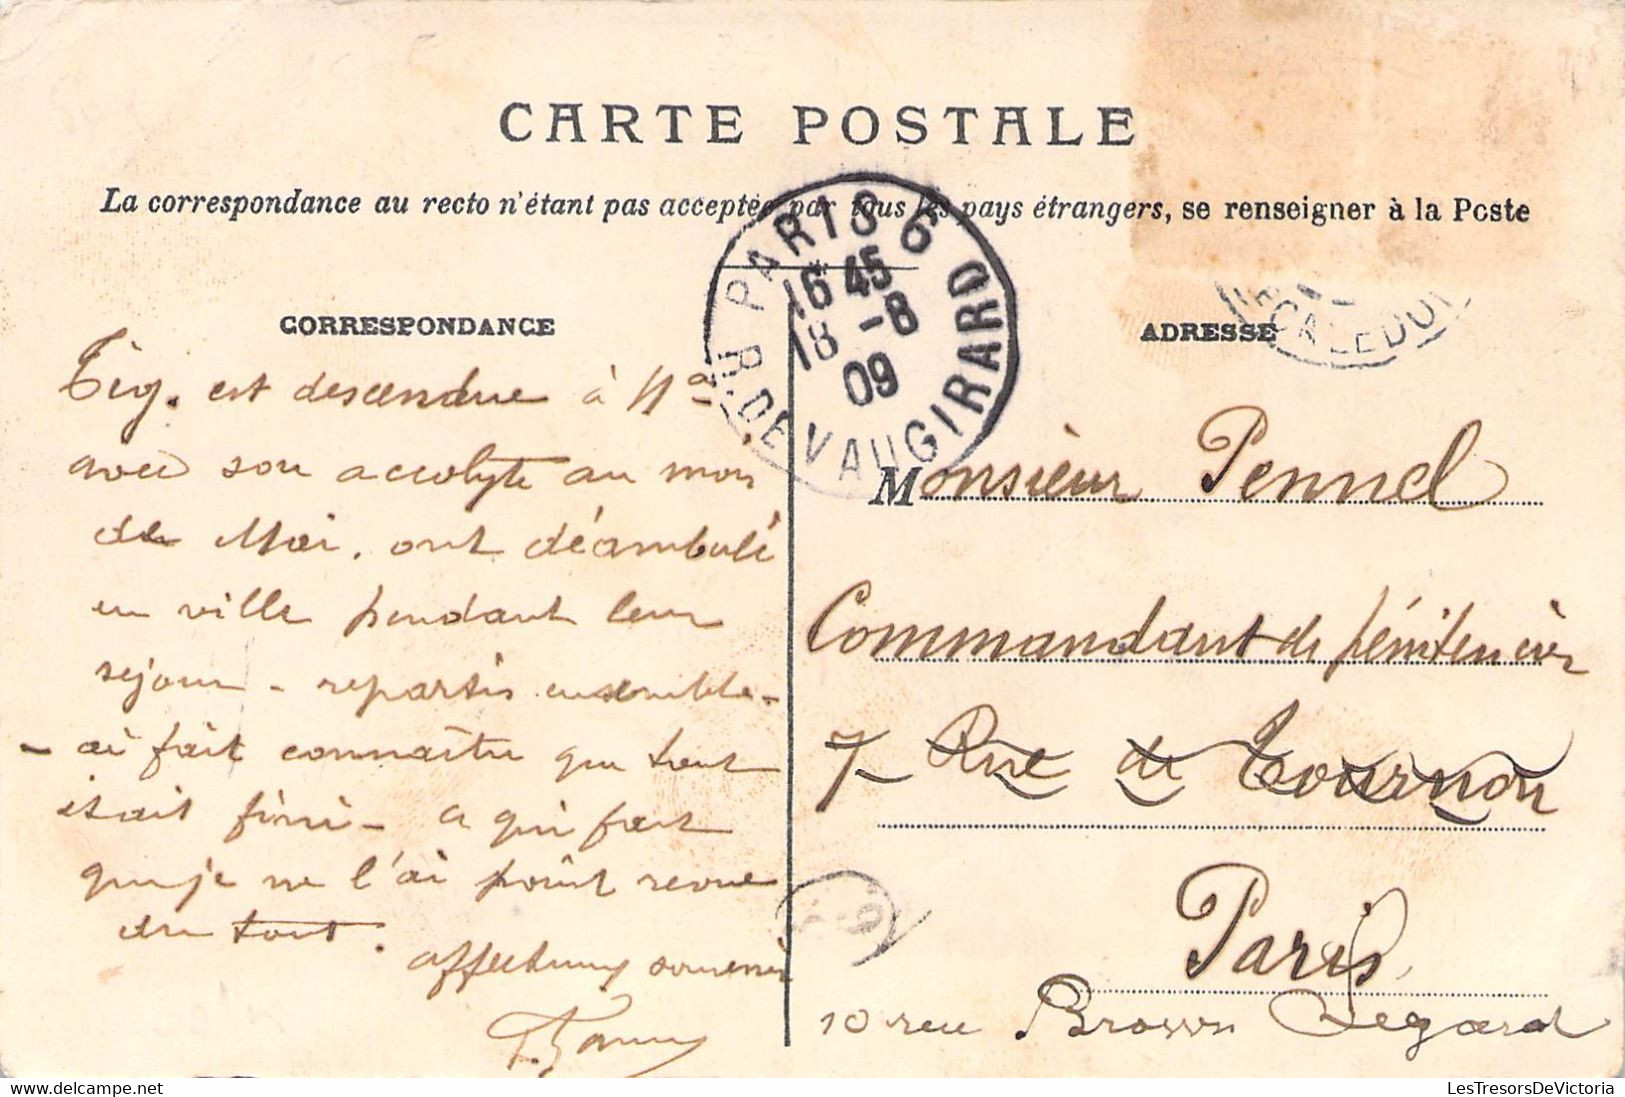 CARTE POSTALE
La correspondance au recto n'étant pas acceptée par tous les pays étrangers, se renseigner à la Poste
PARIS 6
R. DE VAUGIRARD
16 45
18 -8
09
CALEDO
CORRESPONDANCE
est descendue à Nᵃ
avec son accolyte au mois
de Mai. ont déambulé
en ville pendant leur
séjour - repartis ensemble -
- ai fait connaître que tout
était fini - ce qui fait
que je ne l'ai point revue
du tout.
affectueux souvenir
ADRESSE
Monsieur Pennel
Commandant de pénitencier
7 - Rue de Tournon
Paris
10 rue Brown Segard
LesTresorsDeVictoria